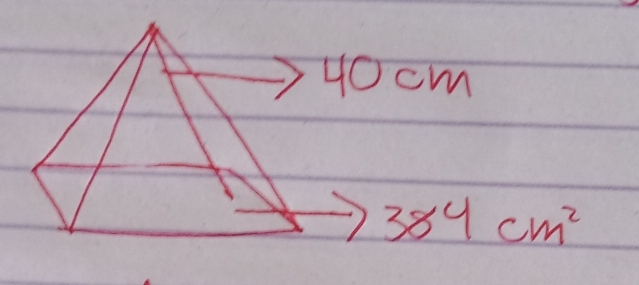 40 cm
384 cm²